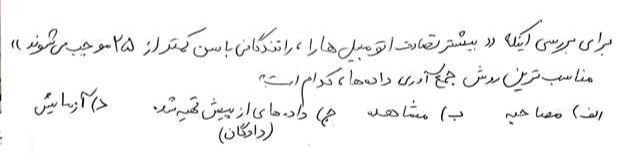 برای بررسی اینکه « بیشتر تصادف اتومبیل ها را ، رانندگانی با سن کمتر از ۲۵ موجب می شوند »
مناسب ترین روش جمع آوری داده ها ، کدام است؟
الف) مصاحبه ب) مشاهده ج) داده های از پیش تهیه شده د) آزمایش
(دادگان)